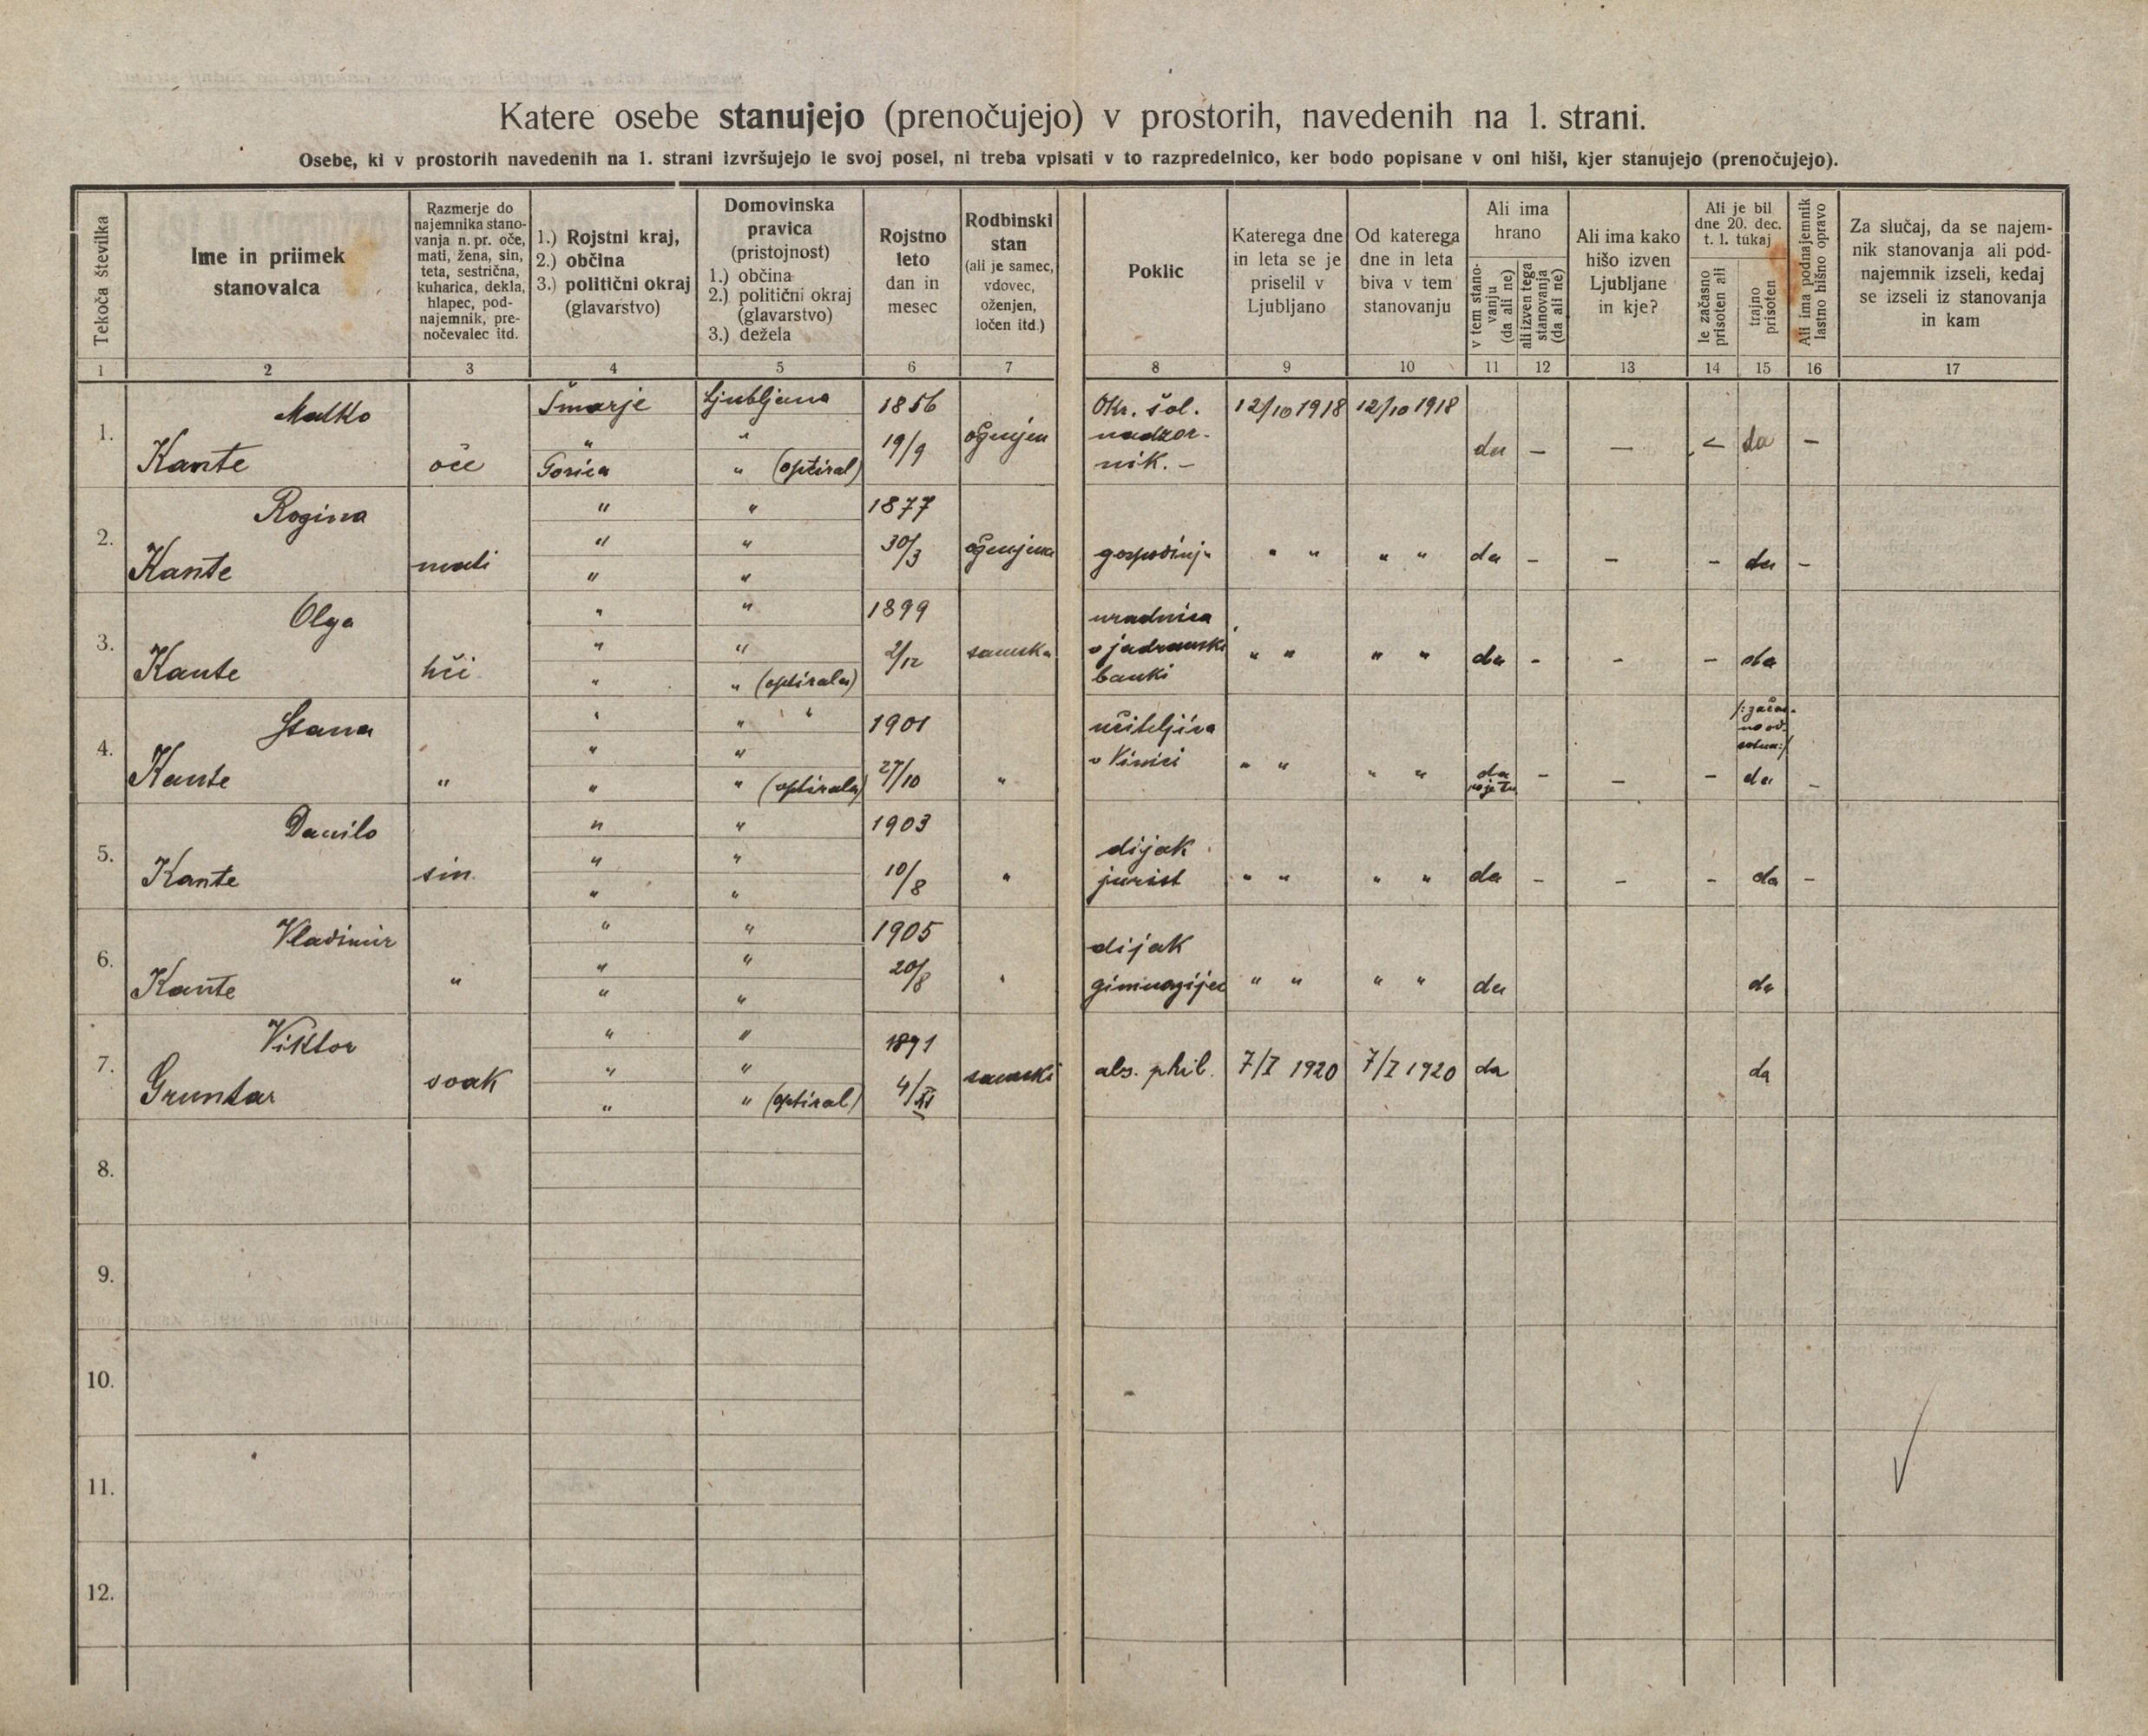 Katere osebe stanujejo (prenočujejo) v prostorih, navedenih na 1. strani.
Osebe, ki v prostorih navedenih na 1. strani izvršujejo le svoj posel, ni treba vpisati v to razpredelnico, ker bodo popisane v oni hiši, kjer stanujejo (prenočujejo).
Tekoča številka
Ime in priimek
stanovalca
Razmerje do
najemnika stano-
vanja n. pr. oče,
mati, žena, sin,
teta, sestrična,
kuharica, dekla,
hlapec, pod-
najemnik, pre-
nočevalec itd.
1.) Rojstni kraj,
2.) občina
3.) politični okraj
(glavarstvo)
Domovinska
pravica
(pristojnost)
1.) občina
2.) politični okraj
(glavarstvo)
3.) dežela
Rojstno
leto
dan in
mesec
Rodbinski
stan
(ali je samec,
vdovec,
oženjen,
ločen itd.)
Poklic
Katerega dne
in leta se je
priselil v
Ljubljano
Od katerega
dne in leta
biva v tem
stanovanju
Ali ima
hrano
v tem stano-
vanju
(da ali ne)
ali izven tega
stanovanja
(da ali ne)
Ali ima kako
hišo izven
Ljubljane
in kje?
Ali je bil
dne 20. dec.
t. l. tukaj
le začasno
prisoten ali
trajno
prisoten
Ali ima podnajemnik
lastno hišno opravo
Za slučaj, da se najem-
nik stanovanja ali pod-
najemnik izseli, kedaj
se izseli iz stanovanja
in kam
1 2 3 4 5 6 7 8 9 10 11 12 13 14 15 16 17
1.
Matko
Kante
oče
Šmarje
"
Gorica
Ljubljana
"
" (optiral)
1856
19/9
oženjen
Okr. šol.
nadzor-
nik. –
12/10 1918
12/10 1918
da – – – da –
2.
Rogina
Kante
mati
"
"
"
"
"
"
1877
30/3
oženjena
gospodinja
" "
" "
da – – – da –
3.
Olga
Kante
hči
"
"
"
"
"
" (optirala)
1899
2/12
samska
uradnica
v jadranski
banki
" "
" "
da – – – da
4.
Stana
Kante
"
"
"
"
" "
"
" (optirala)
1901
27/10
"
učiteljica
v Vinici
" "
" "
da
– – –
/: začas-
no od-
sotna:/
da –
5.
Danilo
Kante
sin
"
"
"
"
"
"
1903
10/8
"
dijak
jurist
" "
" "
da – – – da –
6.
Vladimir
Kante
"
"
"
"
"
"
"
1905
20/8
"
dijak
gimnazijec
" "
" "
da da
7.
Viktor
Gruntar
svak
"
"
"
"
"
" (optiral)
1891
4/XI
samski
abs. phil.
7/I 1920
7/I 1920
da da
8.
9.
10.
11.
12.